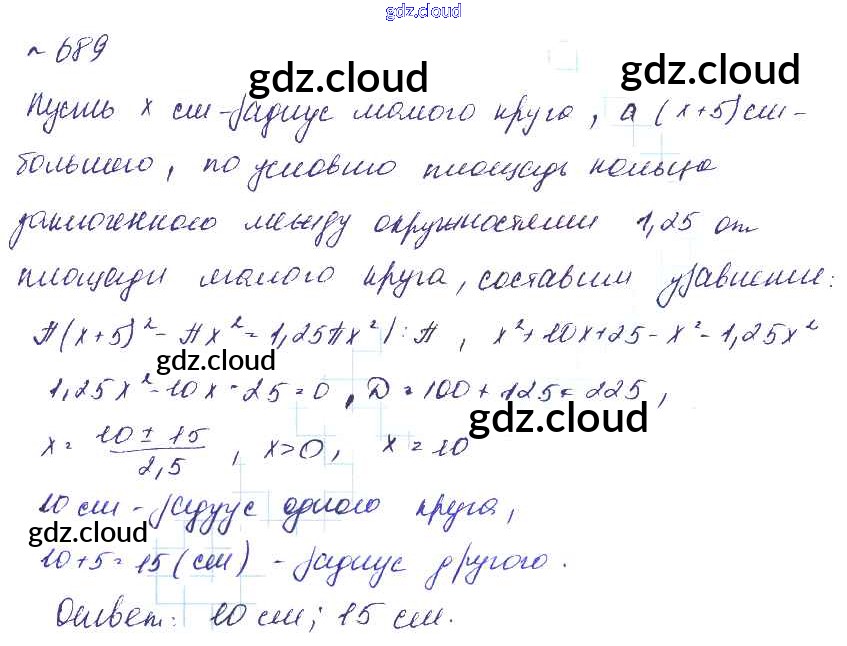 gdz.cloud
№ 689
gdz.cloud gdz.cloud
Пусть x см - радиус малого круга, а (x+5) см -
большого, по условию площадь кольца
заключенного между окружностями 1,25 от
площади малого круга, составим уравнение:
π(x+5)² - πx² = 1,25πx² | : π, x² + 10x + 25 - x² = 1,25x²
gdz.cloud
1,25x² - 10x - 25 = 0, D = 100 + 125 = 225,
gdz.cloud
x = (10 ± 15)/2,5, x > 0, x = 10
10 см - радиус одного круга,
gdz.cloud
10 + 5 = 15 (см) - радиус другого.
Ответ: 10 см; 15 см.